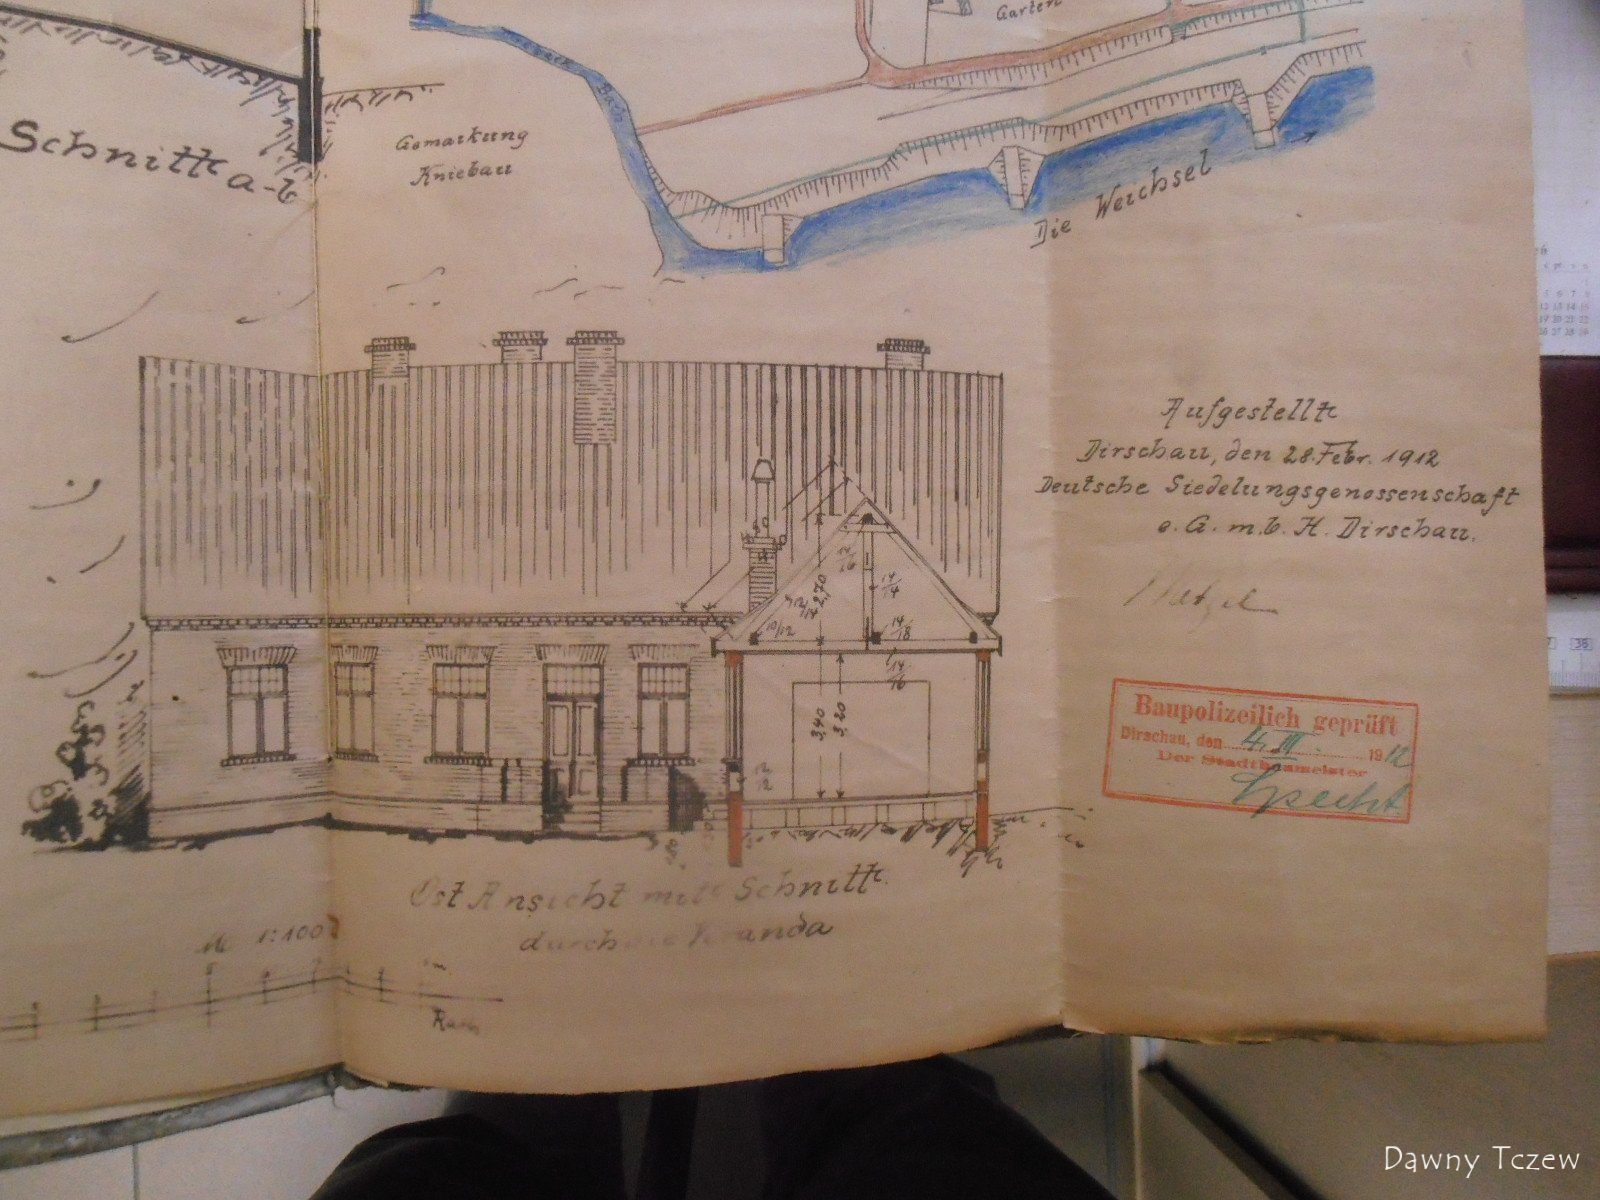 Garten
Bach
Schnitt a-b
Gemarkung
Kniebau
Die Weichsel
Aufgestellt
Dirschau, den 28. Febr. 1912
Deutsche Siedelungsgenossenschaft
e. G. m. b. H. Dirschau.
50
14/16
2,70
14/14
12/14
10/12
14/18
14/16
3,40
3,20
12/12
Baupolizeilich geprüft
Dirschau, den 4. III. 1912
Der Stadtbaumeister
Specht
Ost Ansicht mit Schnitt
durch die Veranda
M 1:100
Dawny Tczew